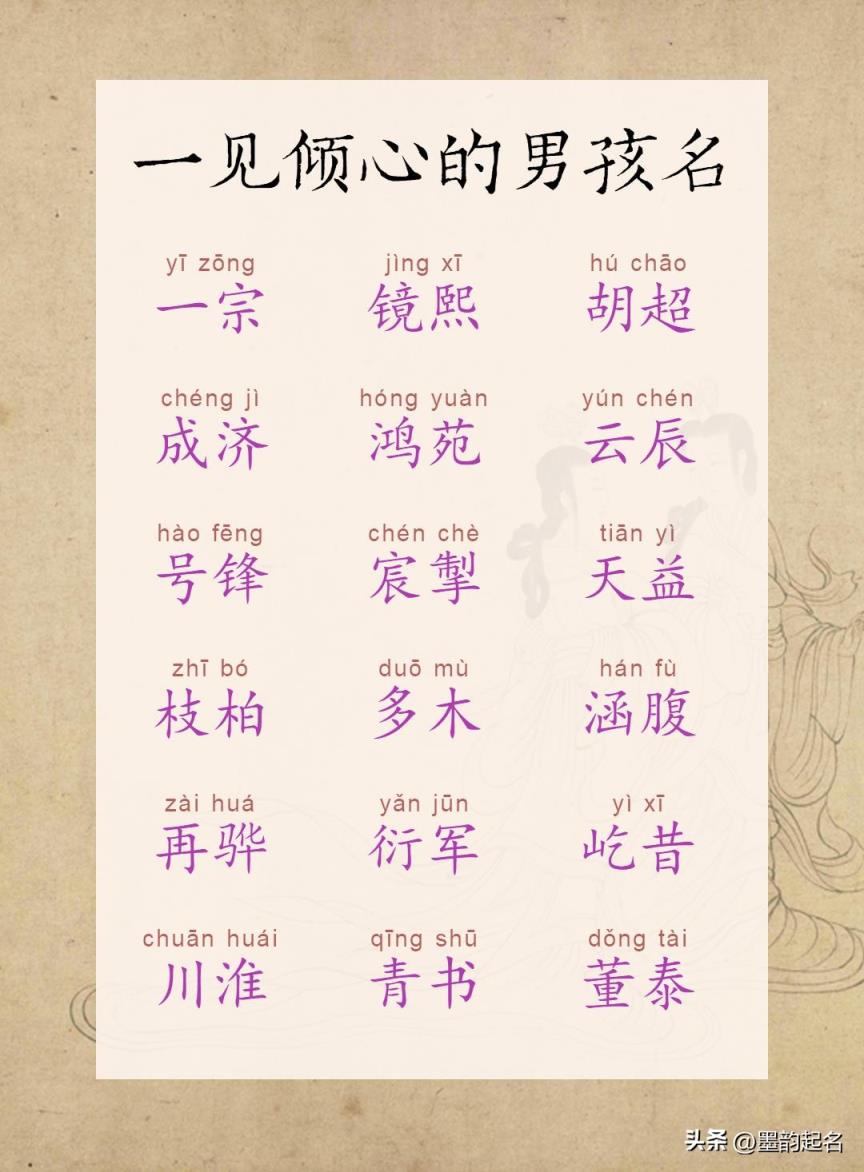 一见倾心的男孩名
yī zōng jìng xī hú chāo
一宗 镜熙 胡超
chéng jì hóng yuàn yún chén
成济 鸿苑 云辰
hào fēng chén chè tiān yì
号锋 宸掣 天益
zhī bó duō mù hán fù
枝柏 多木 涵腹
zài huá yǎn jūn yì xī
再骅 衍军 屹昔
chuān huái qīng shū dǒng tài
川淮 青书 董泰
头条 @墨韵起名